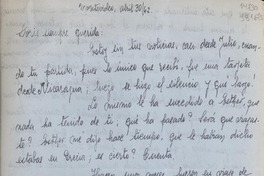 Montevideo, abril 30/62.
querida:
Estoy sin tus noticias, casi desde Julio, cuan-
do tu partida, pues lo único que recibí fué una tarjeta
desde Nicaragua; luego se hizo el silencio. Y que largo.
Lo mismo le ha sucedido a Esther, que
nada ha tenido de ti; qué ha pasado? Será que viajas-
te? Esther me dijo hace tiempo, que le habían dicho
estabas en Grecia; es cierto? Cuenta.